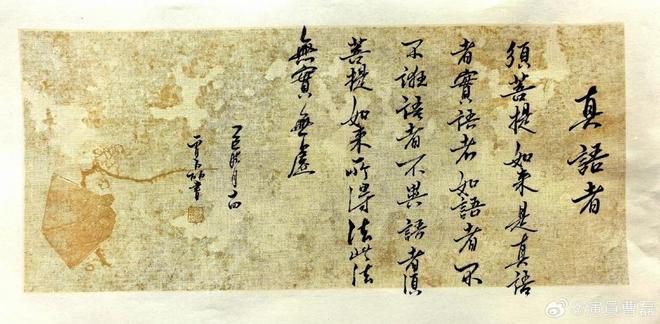 真語者
須菩提如来是真語
者實語者如語者不
不誑語者不異語者須
菩提如来所得法此法
無實無虛
乙巳月十四
書
@演員曹磊